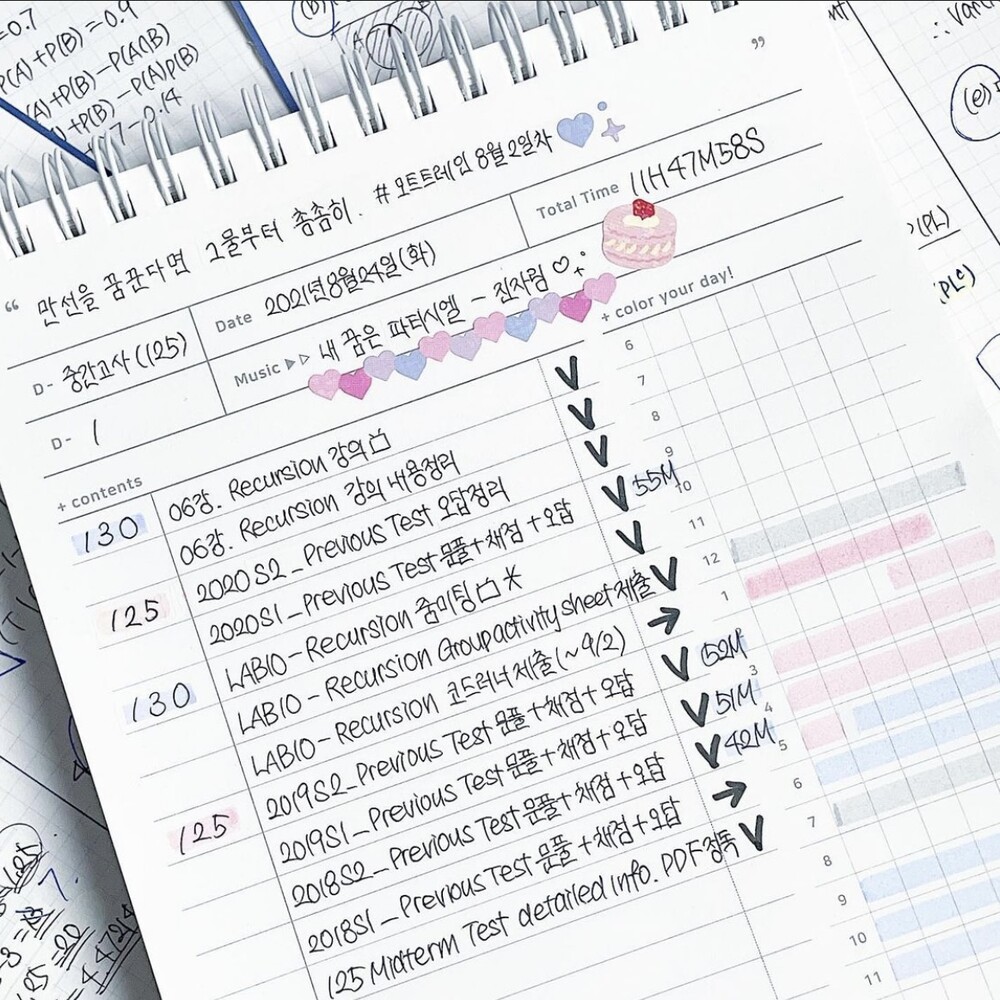 =0.7
P(A)+P(B)=0.9
(A)+P(B)-P(A∩B)
)+P(B)-P(A)P(B)
7-0.14
(b)
A
(e)
P(PL)
PLᶜ)
"
“ 만선을 꿈꾼다면 그물부터 촘촘히. # 오트트레인 8월2일차
D- 중간고사 (125)
Date 2021년8월24일(화)
Total Time 11H47M58S
D- 1
Music ▷▷ 내 꿈은 파티시엘 - 진자림 ♡
+ contents
+ color your day!
130 06강. Recursion 강의 V
06강. Recursion 강의 내용정리 V
2020S2_Previous Test 오답정리 V
125 2020S1_Previous Test 문풀+채점+오답 V 55M
LAB10-Recursion 줌미팅 V
LAB10-Recursion Group activity sheet 제출 V
130 LAB10-Recursion 코드러너 제출(~9/2) →
2019S2_Previous Test 문풀+채점+오답 V 52M
2019S1_Previous Test 문풀+채점+오답 V 51M
125 2018S2_Previous Test 문풀+채점+오답 V 42M
2018S1_Previous Test 문풀+채점+오답 →
125 Midterm Test detailed info. PDF정독 V
6
7
8
9
10
11
12
1
3
4
5
6
7
8
9
10
11